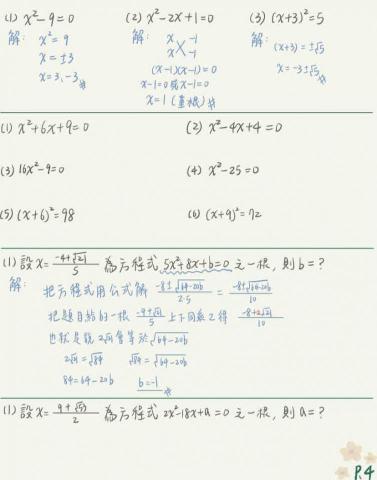 (1) x²-9=0 (2) x²-2x+1=0 (3) (x+3)²=5
解: x²=9 解: x -1 解: (x+3)=±√5
x=±3 x -1 x=-3±√5
x=3,-3 (x-1)(x-1)=0
x-1=0 或 x-1=0
x=1 (重根)
(1) x²+6x+9=0 (2) x²-4x+4=0
(3) 16x²-9=0 (4) x²-25=0
(5) (x+6)²=98 (6) (x+9)²=72
(1) 設 x= (-4+√21)/5 為方程式 5x²+8x+b=0 之一根, 則 b=?
解: 把方程式用公式解 (-8±√(64-20b))/(2·5) = (-8±√(64-20b))/10
把題目給的一根 (-4+√21)/5 上下同乘2得 (-8+2√21)/10
也就是說 2√21 會等於 √(64-20b)
2√21=√84 √84=√(64-20b)
84=64-20b b=-1
(1) 設 x= (9+√53)/2 為方程式 2x²-18x+a=0 之一根, 則 a=?
P.4